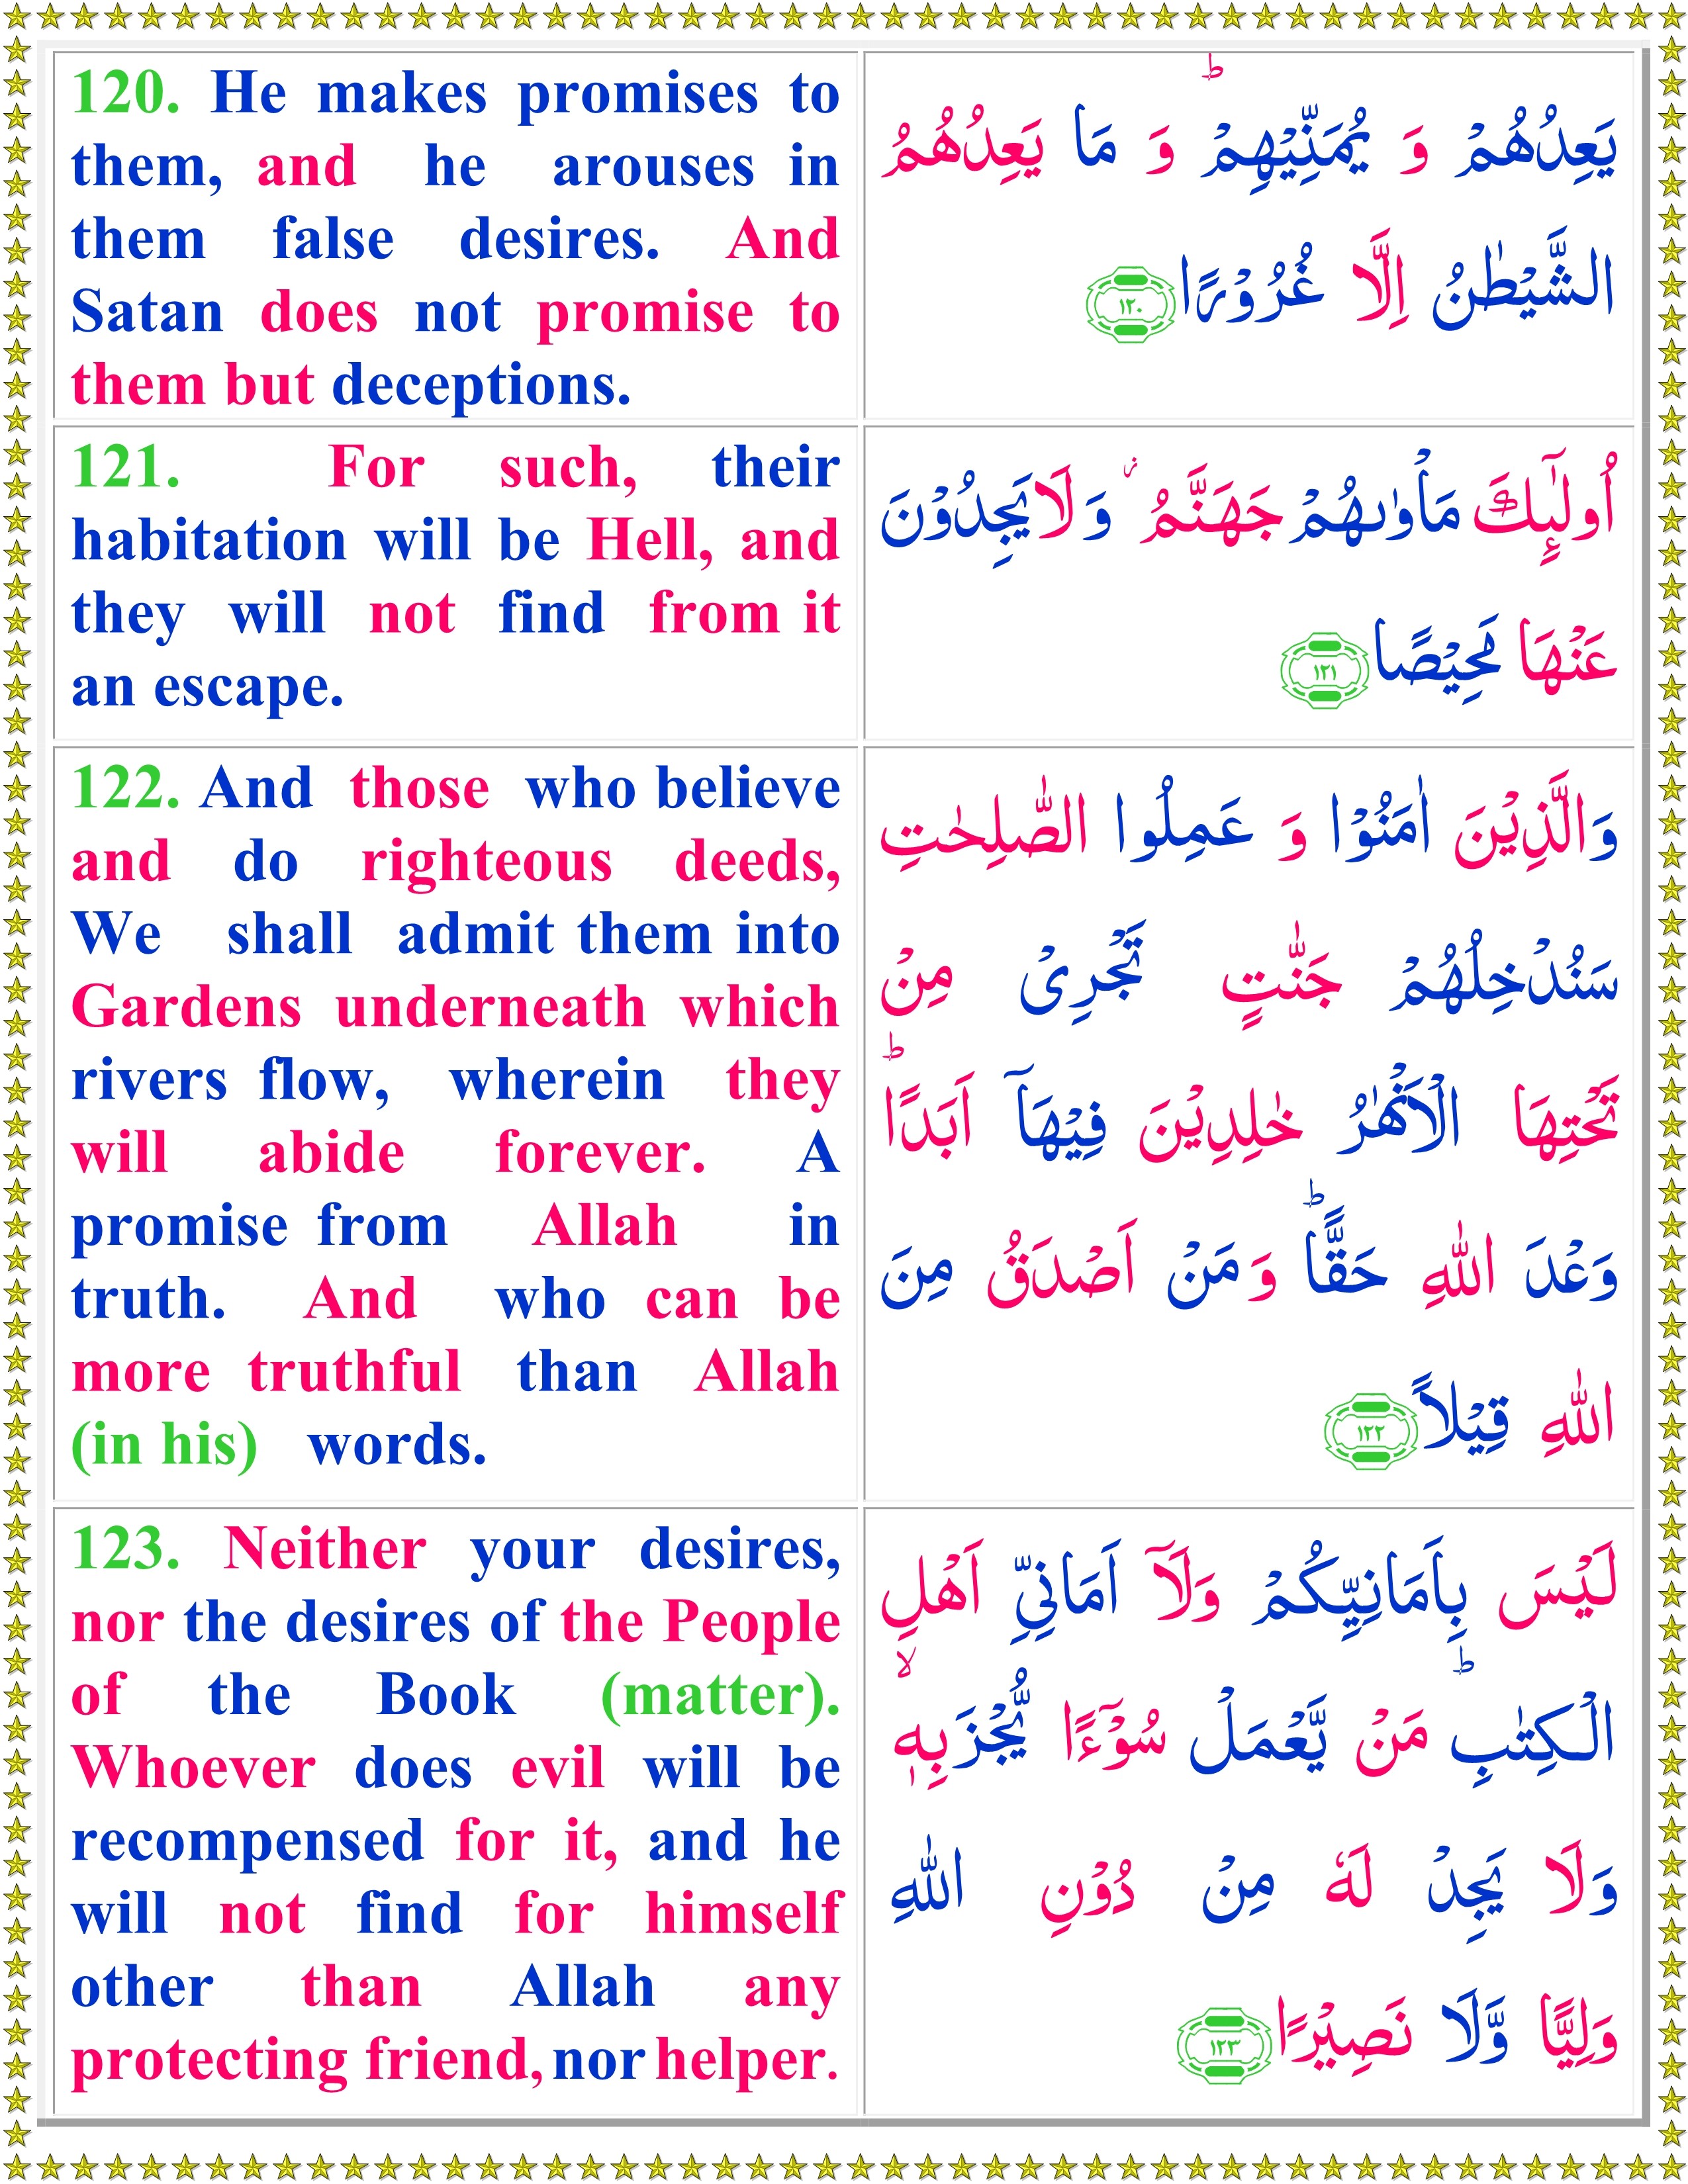 120. He makes promises to
them, and he arouses in
them false desires. And
Satan does not promise to
them but deceptions.
يَعِدُهُمْ وَ يُمَنِّيْهِمْ ؕ وَ مَا يَعِدُهُمُ
الشَّيْطٰنُ اِلَّا غُرُوْرًا ١٢٠
121. For such, their
habitation will be Hell, and
they will not find from it
an escape.
اُولٰٓئِكَ مَاْوٰىهُمْ جَهَنَّمُ ؗ وَلَا يَجِدُوْنَ
عَنْهَا مَحِيْصًا ١٢١
122. And those who believe
and do righteous deeds,
We shall admit them into
Gardens underneath which
rivers flow, wherein they
will abide forever. A
promise from Allah in
truth. And who can be
more truthful than Allah
(in his) words.
وَالَّذِيْنَ اٰمَنُوْا وَ عَمِلُوا الصّٰلِحٰتِ
سَنُدْخِلُهُمْ جَنّٰتٍ تَجْرِىْ مِنْ
تَحْتِهَا الْاَنْهٰرُ خٰلِدِيْنَ فِيْهَاۤ اَبَدًا ؕ
وَعْدَ اللّٰهِ حَقًّا ؕ وَ مَنْ اَصْدَقُ مِنَ
اللّٰهِ قِيْلاً ١٢٢
123. Neither your desires,
nor the desires of the People
of the Book (matter).
Whoever does evil will be
recompensed for it, and he
will not find for himself
other than Allah any
protecting friend, nor helper.
لَيْسَ بِاَمَانِيِّكُمْ وَلَاۤ اَمَانِىِّ اَهْلِ
الْكِتٰبِ ؕ مَنْ يَّعْمَلْ سُوْٓءًا يُّجْزَ بِهٖ ۙ
وَلَا يَجِدْ لَهٗ مِنْ دُوْنِ اللّٰهِ
وَلِيًّا وَّلَا نَصِيْرًا ١٢٣